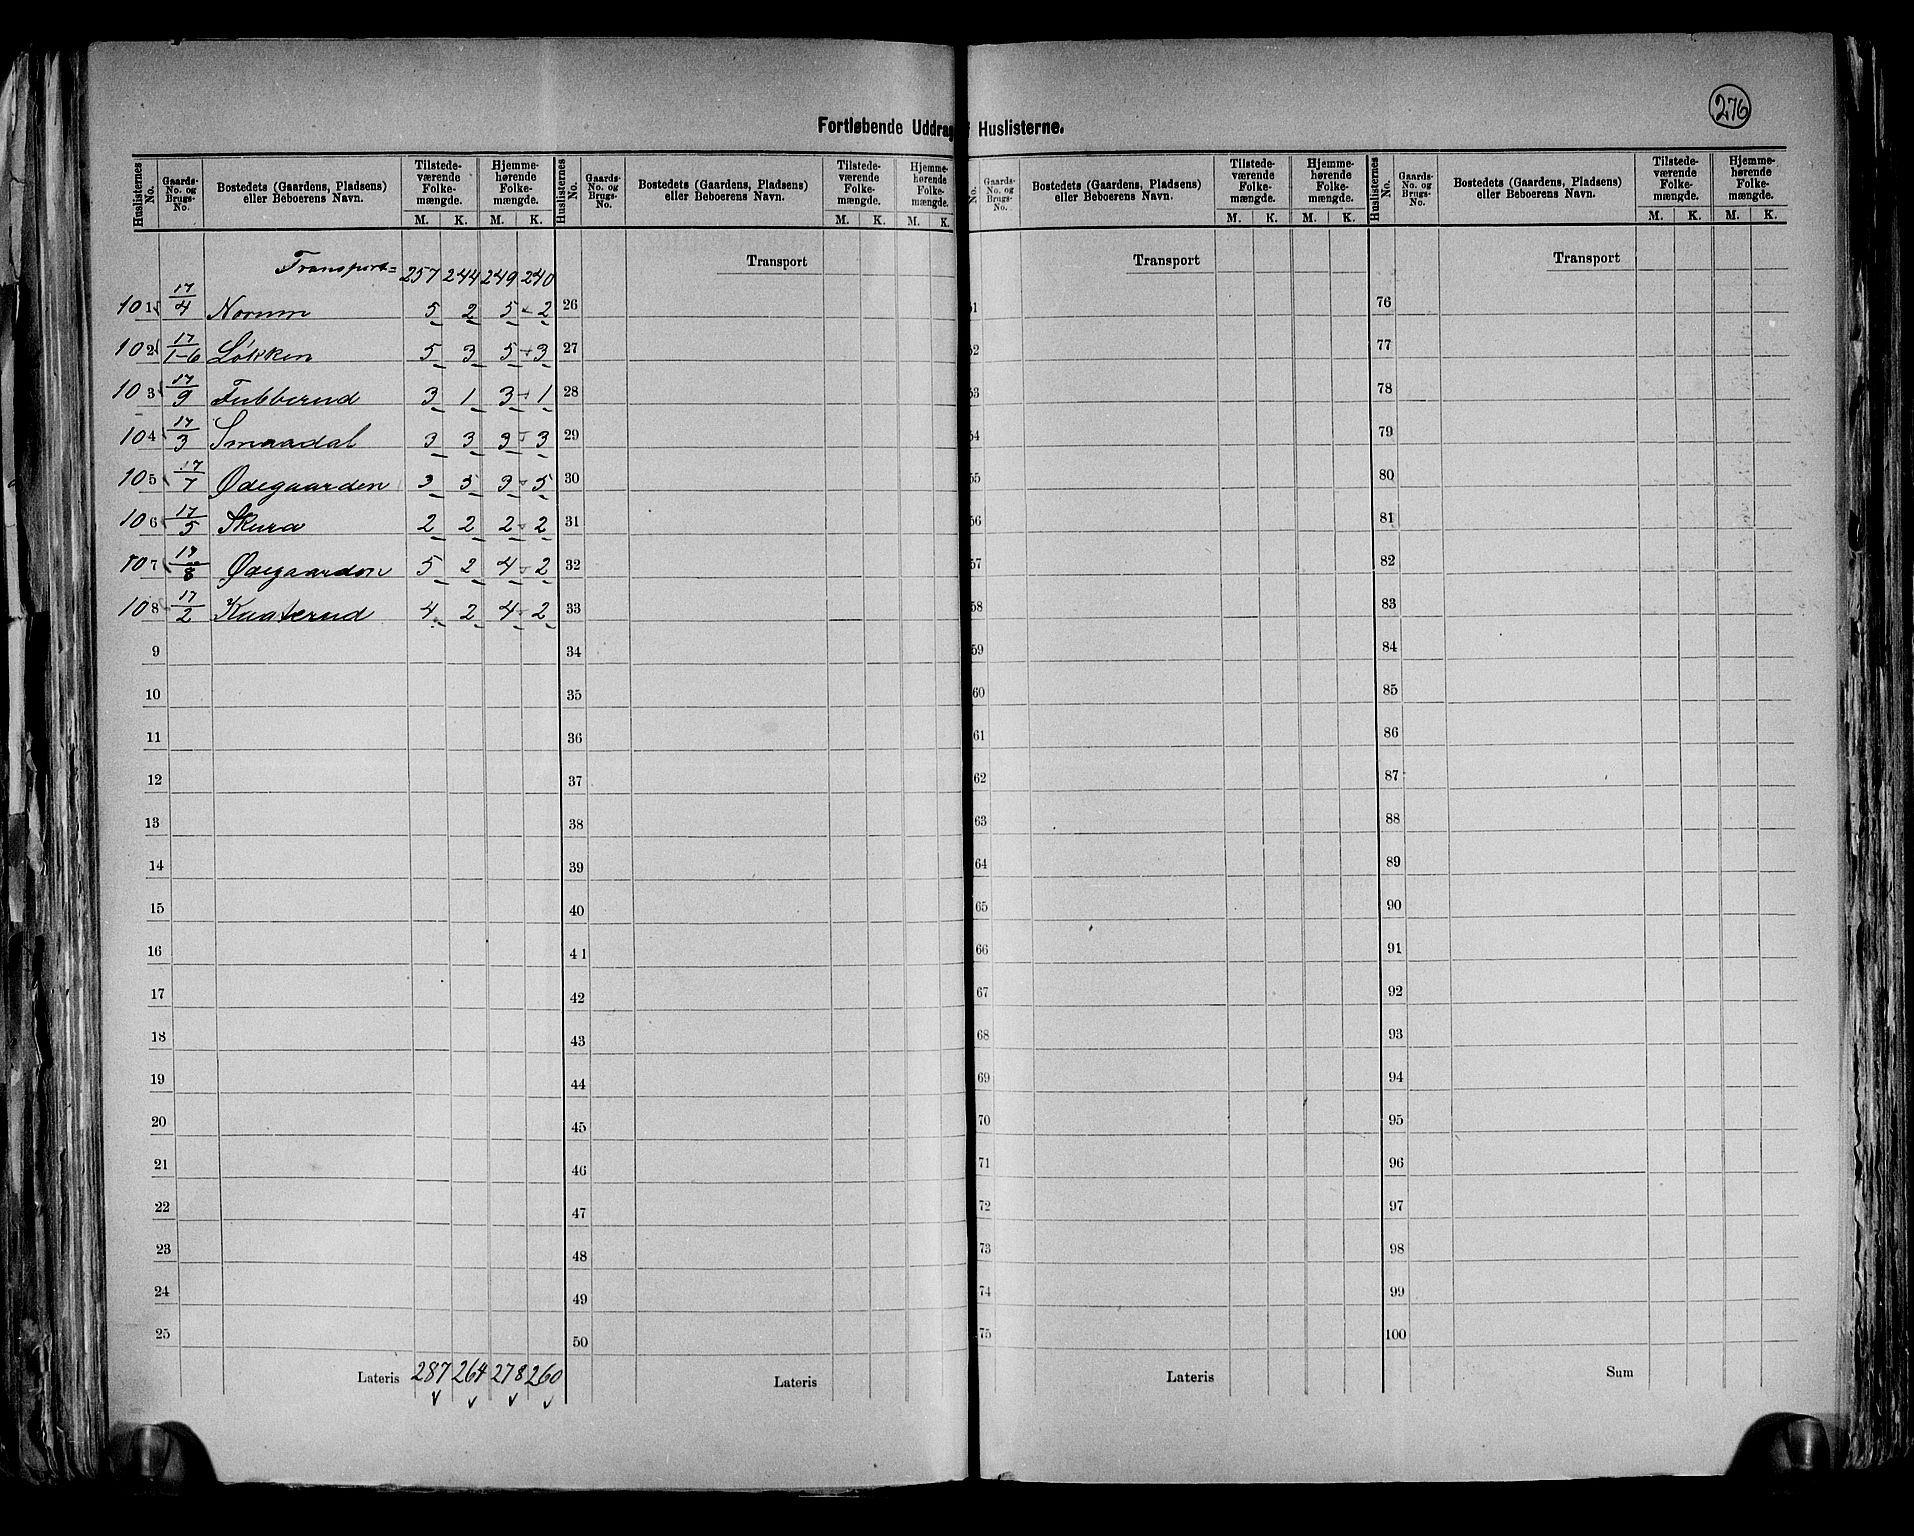 276
Fortløbende Uddrag Huslisterne.
Huslisternes No. Gaards-No. og Brugs-No. Bostedets (Gaardens, Pladsens) eller Beboerens Navn. Tilstedeværende Folkemængde. M. K. Hjemmehørende Folkemængde. M. K.
Huslisternes No. Gaards-No. og Brugs-No. Bostedets (Gaardens, Pladsens) eller Beboerens Navn. Tilstedeværende Folkemængde. M. K. Hjemmehørende Folkemængde. M. K.
No. Gaards-No. og Brugs-No. Bostedets (Gaardens, Pladsens) eller Beboerens Navn. Tilstedeværende Folkemængde. M. K. Hjemmehørende Folkemængde. M. K.
Huslisternes No. Gaards-No. og Brugs-No. Bostedets (Gaardens, Pladsens) eller Beboerens Navn. Tilstedeværende Folkemængde. M. K. Hjemmehørende Folkemængde. M. K.
Transport= 257 244 249 240
101 17/4 Norum 5 2 5 2
102 17/1-6 Løkken 5 3 5 3
103 17/9 Fubberud 3 1 3 1
104 17/3 Smaadal 3 3 3 3
105 17/7 Ødegaarden 3 5 3 5
106 17/5 Skura 2 2 2 2
107 17/8 Ødegaarden 5 2 4 2
108 17/2 Knaterud 4 2 4 2
9
10
11
12
13
14
15
16
17
18
19
20
21
22
23
24
25
Lateris 287 264 278 260
Transport
26
27
28
29
30
31
32
33
34
35
36
37
38
39
40
41
42
43
44
45
46
47
48
49
50
Lateris
Transport
51
52
53
54
55
56
57
58
59
60
61
62
63
64
65
66
67
68
69
70
71
72
73
74
75
Lateris
Transport
76
77
78
79
80
81
82
83
84
85
86
87
88
89
90
91
92
93
94
95
96
97
98
99
100
Sum